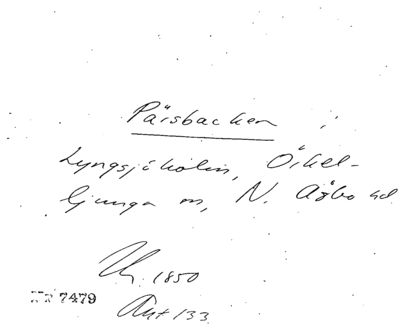 Pärsbacken i
Lyngsjöholm, Örkel-
ljunga sn, N. Åsbo hd
Uh. 1850
Nr 7479
Avt 133